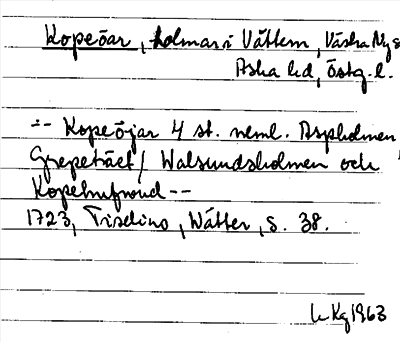 Kopeöar, holmar i Vättern, Västra Ny s
Aska hd, Östg. l.
-- Kopeöjar 4 st. neml. Aspholmen
/ Walsundsholmen och
Kopehufwud --
1723, Tiselius, Wätter, s. 38.
Kg 1963